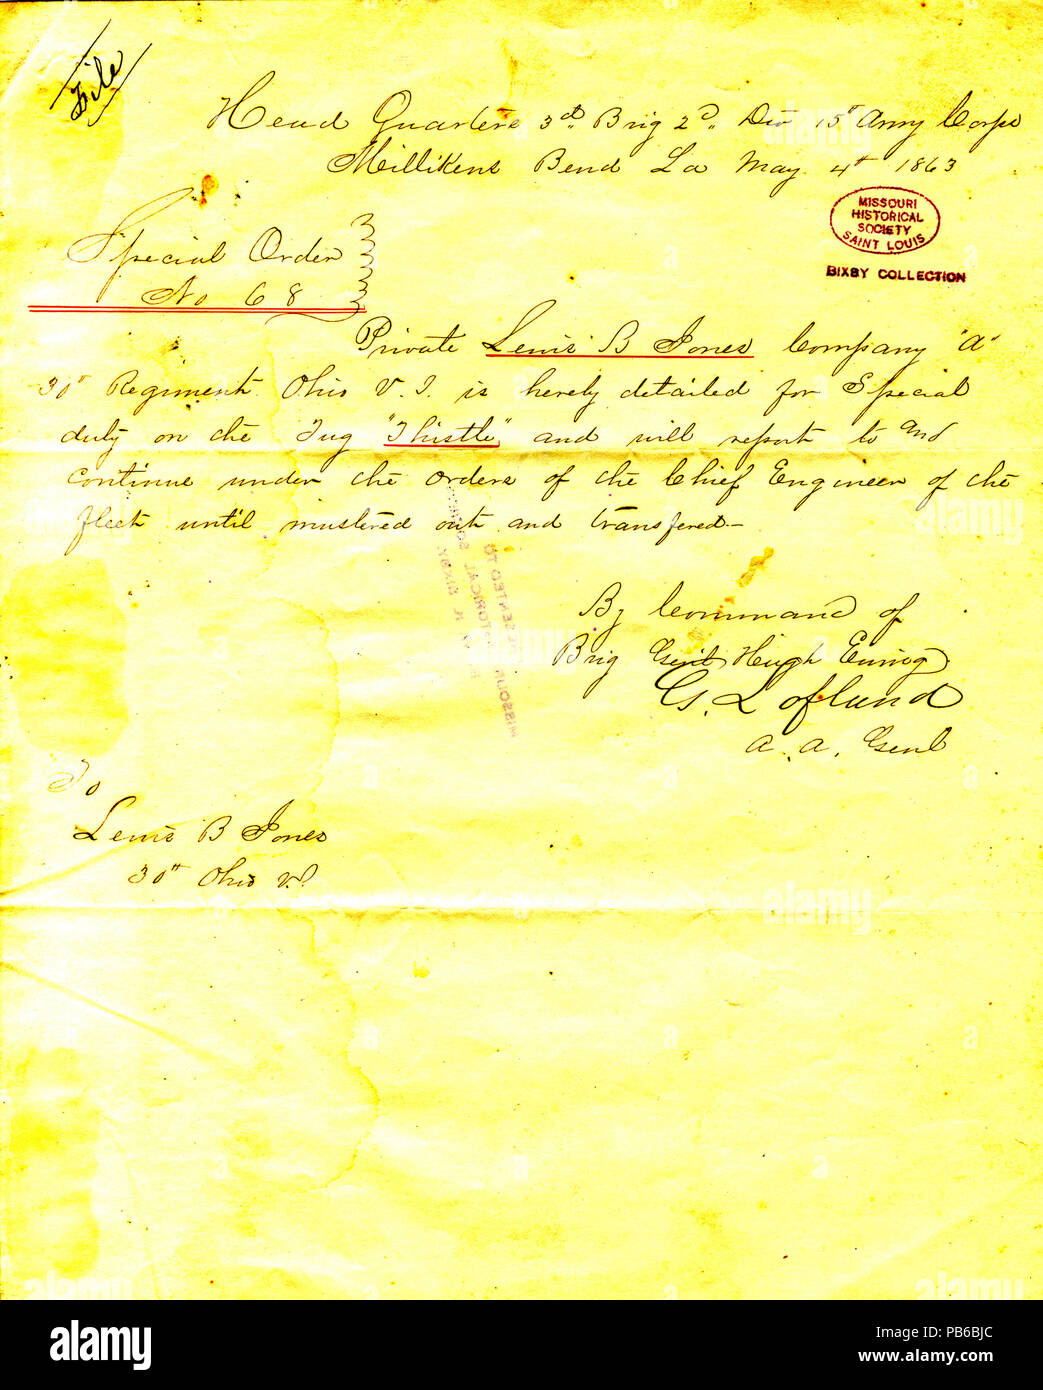 File
Head Quarters 3d Brig 2d Div 15th Army Corps
Millikens Bend La May 4th 1863
MISSOURI
HISTORICAL
SOCIETY
SAINT LOUIS
BIXBY COLLECTION
Special Order
No 68
Private Lewis B Jones Company "A"
30th Regiment Ohio V. I. is hereby detailed for Special
duty on the Tug "Thistle" and will report to and
continue under the orders of the Chief Engineer of the
fleet until mustered out and transfered—
By Command of
Brig Genl Hugh Ewing
G. Lofland
A. A. Genl
To
Lewis B Jones
30th Ohio V.I.
alamy
alamy
Image ID: PB6BJC
www.alamy.com